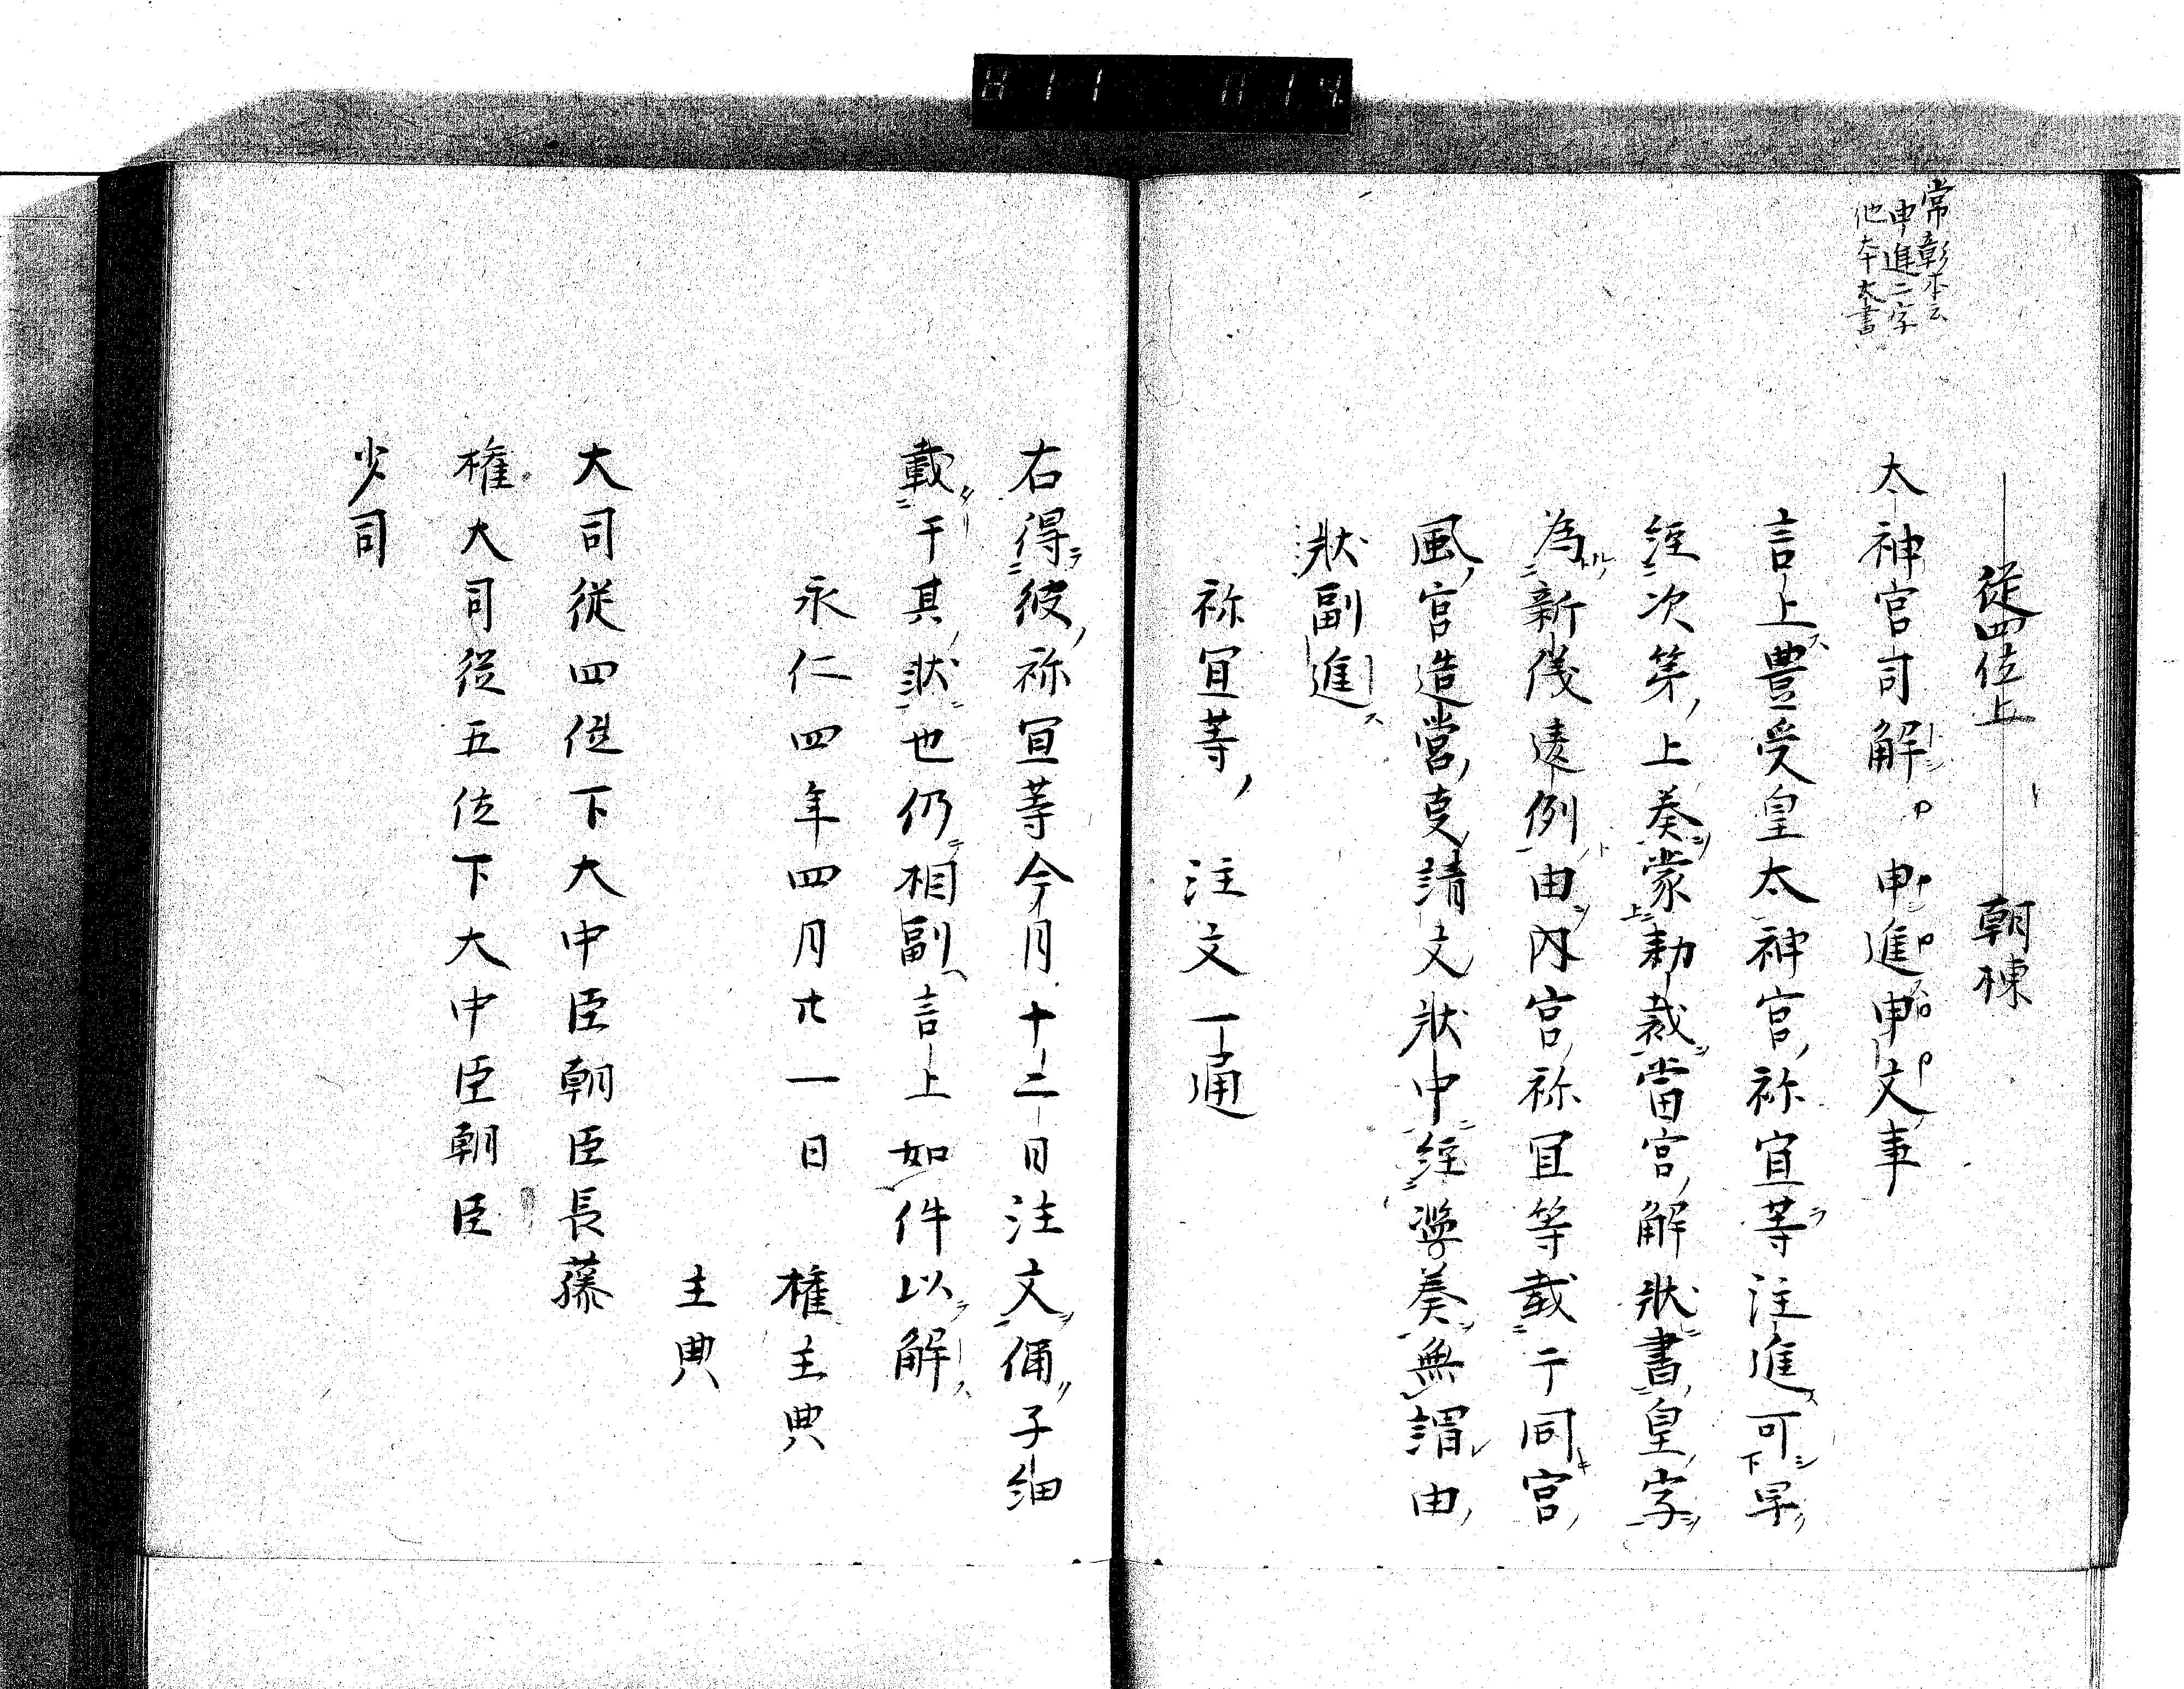 常彰本云
申進二字
他本大書
從四位上　朝棟
太神宮司解　申進申文事
言上豊受皇太神宮祢宜等注進可早
経次第上奏蒙勅裁當宮解状書皇字
為新儀違例由内宮祢宜等載于同宮
風宮造営支請文状中経奏無謂由
状副進
祢宜等注文一通
右得彼祢宜等今月十二日注文偁子細
載于其状也仍相副言上如件以解
永仁四年四月廿一日　権主典
主典
大司從四位下大中臣朝臣長藤
権大司從五位下大中臣朝臣
少司